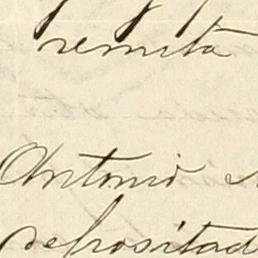 remita
Antonio
depositad